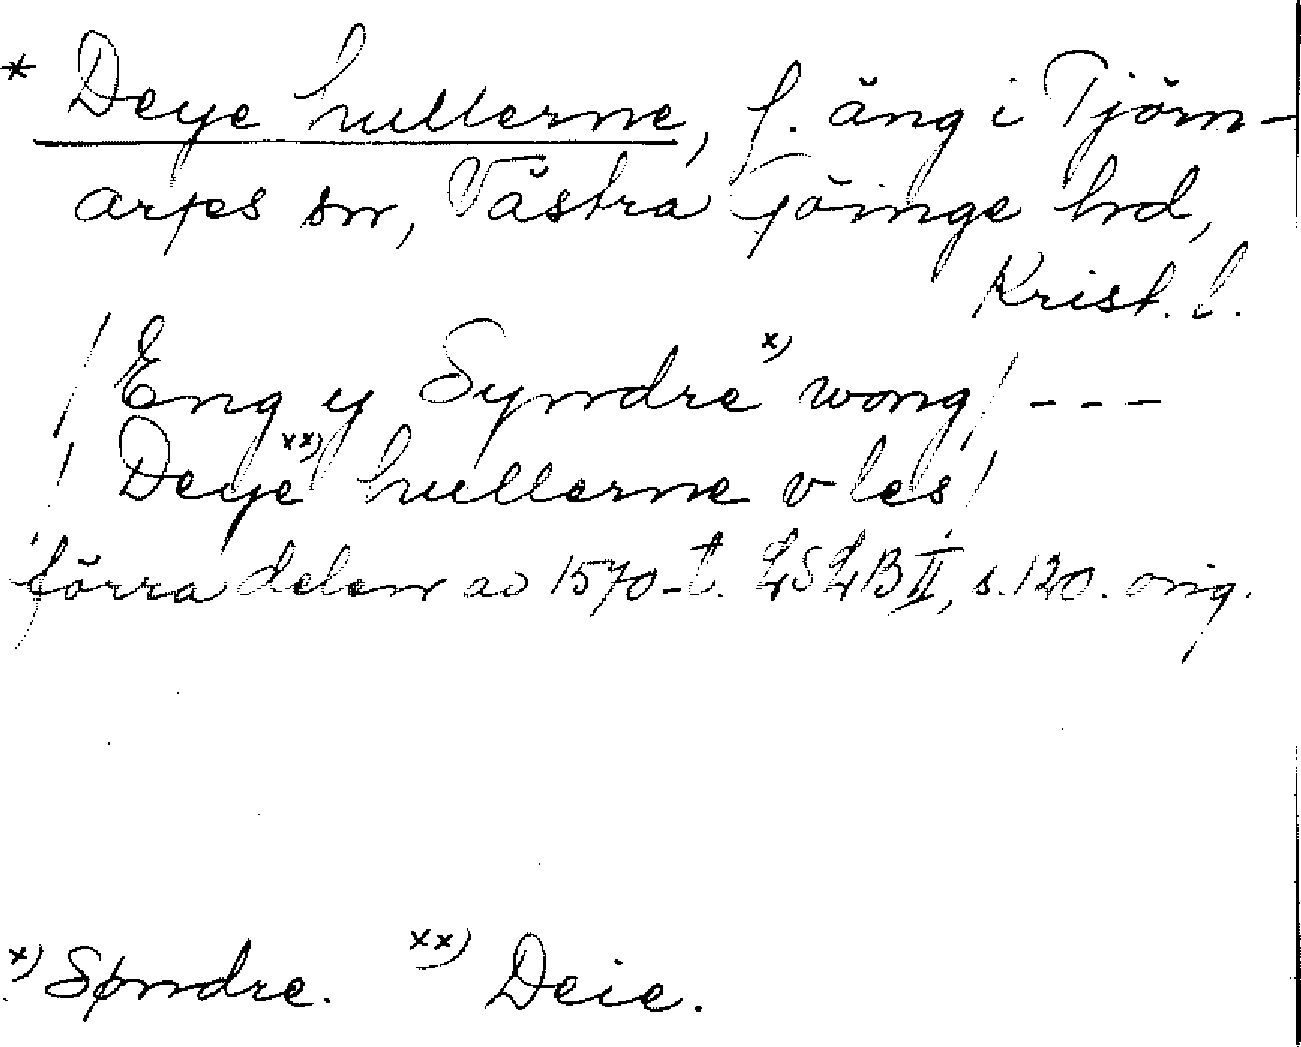 * Deye hullerne, f. äng i Tjörn-
arps sn, Västra Göinge hrd,
Krist. l.
/ Eng y Syndre x) wong / ---
/ Deye xx) hullerne v les /
förra delen av 1570-t. LSLB II, s. 120. orig.
x) Søndre. xx) Deie.